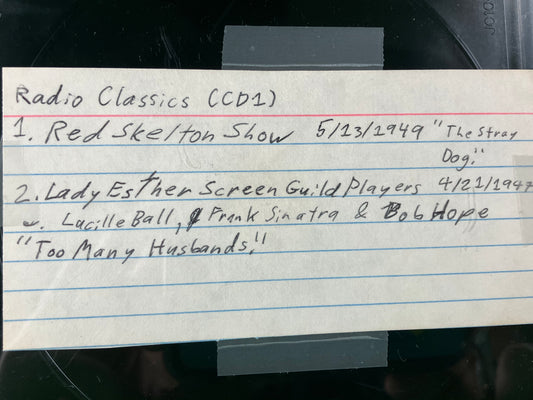 Radio Classics (CD1)
1. Red Skelton Show 5/13/1949 "The Stray
Dog."
2. Lady Esther Screen Guild Players 4/21/1947
w. Lucille Ball, Frank Sinatra & Bob Hope
"Too Many Husbands."